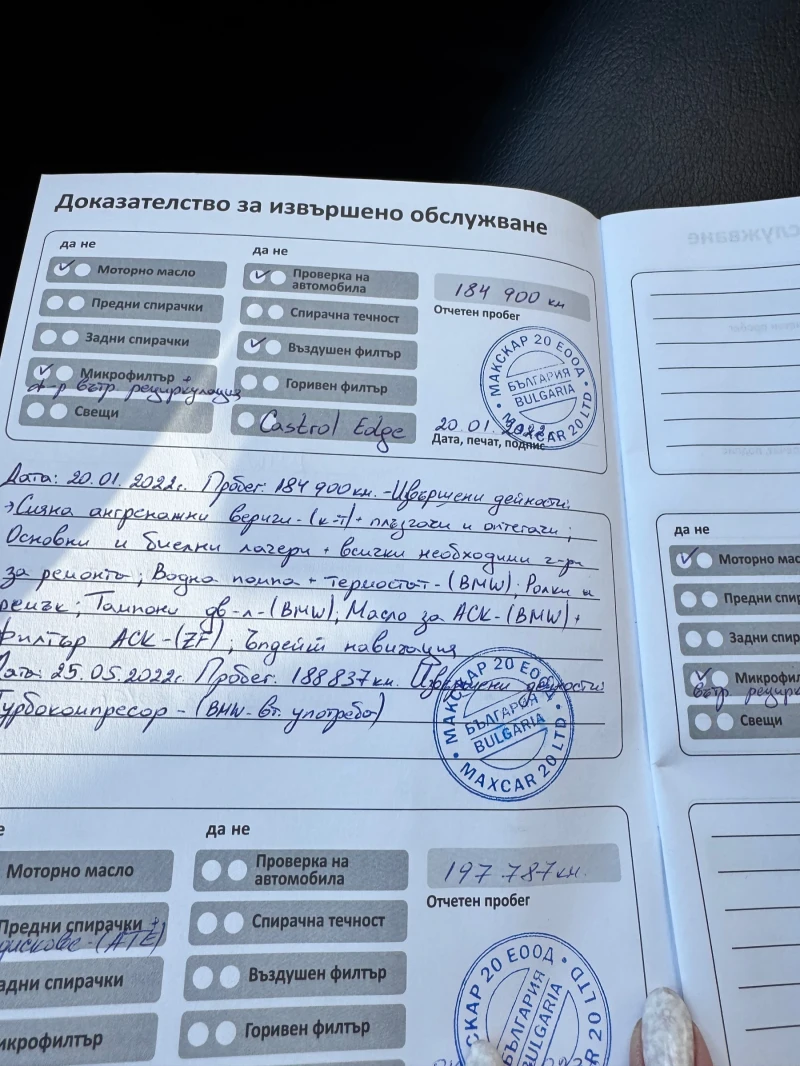 Доказателство за извършено обслужване
да не
да не
Моторно масло
Проверка на
автомобила
184 900 км
Отчетен пробег
Предни спирачки
Спирачна течност
Задни спирачки
Въздушен филтър
Микрофилтър +
ф-р вътр. рециркулация
Горивен филтър
Свещи
Castrol Edge
20.01.2022г.
Дата, печат, подпис
МАКСКАР 20 ЕООД
БЪЛГАРИЯ
BULGARIA
MAXCAR 20 LTD
Дата: 20.01.2022г. Пробег: 184 900км. -Извършени дейности:
ангренажни вериги-(к-т)+ плъзгачи и
Основни и биелни лагери + всички необходими
за ремонта; Водна помпа + термостат-(BMW); Ролки и
ремък; Тампони дв-л-(BMW); Масло за АСК-(BMW)+
филтър АСК-(ZF); Ъпдейт навигация
Дата: 25.05.2022г. Пробег: 188 837км. Извършени дейности:
Турбокомпресор - (BMW- вт. употреба)
МАКСКАР 20 ЕООД
БЪЛГАРИЯ
BULGARIA
MAXCAR 20 LTD
е
да не
Моторно масло
Проверка на
автомобила
197 787км.
Отчетен пробег
Предни спирачки +
дискове-(ATE)
Спирачна течност
адни спирачки
Въздушен филтър
икрофилтър
Горивен филтър
СКАР 20 ЕООД
БЪЛГАРИЯ
BULGARIA
20 LTD
да не
Моторно мас
Предни спир
Задни спир
Микрофил
вътр. рецирк
Свещи